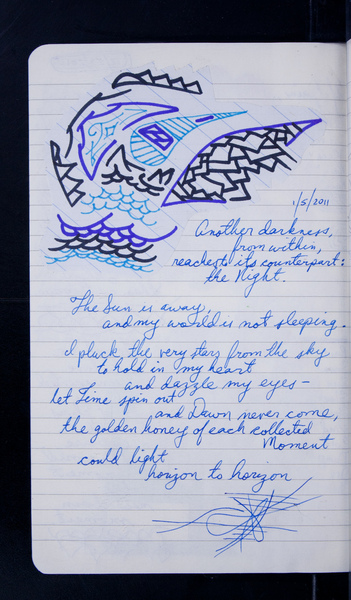 1/5/2011
Another darkness,
from within,
reaches to its counterpart:
the Night.
The Sun is away,
and my world is not sleeping.
I pluck the very stars from the sky
to hold in my heart
and dazzle my eyes –
let Time spin out
and Dawn never come,
the golden honey of each collected
Moment
could light
horizon to horizon